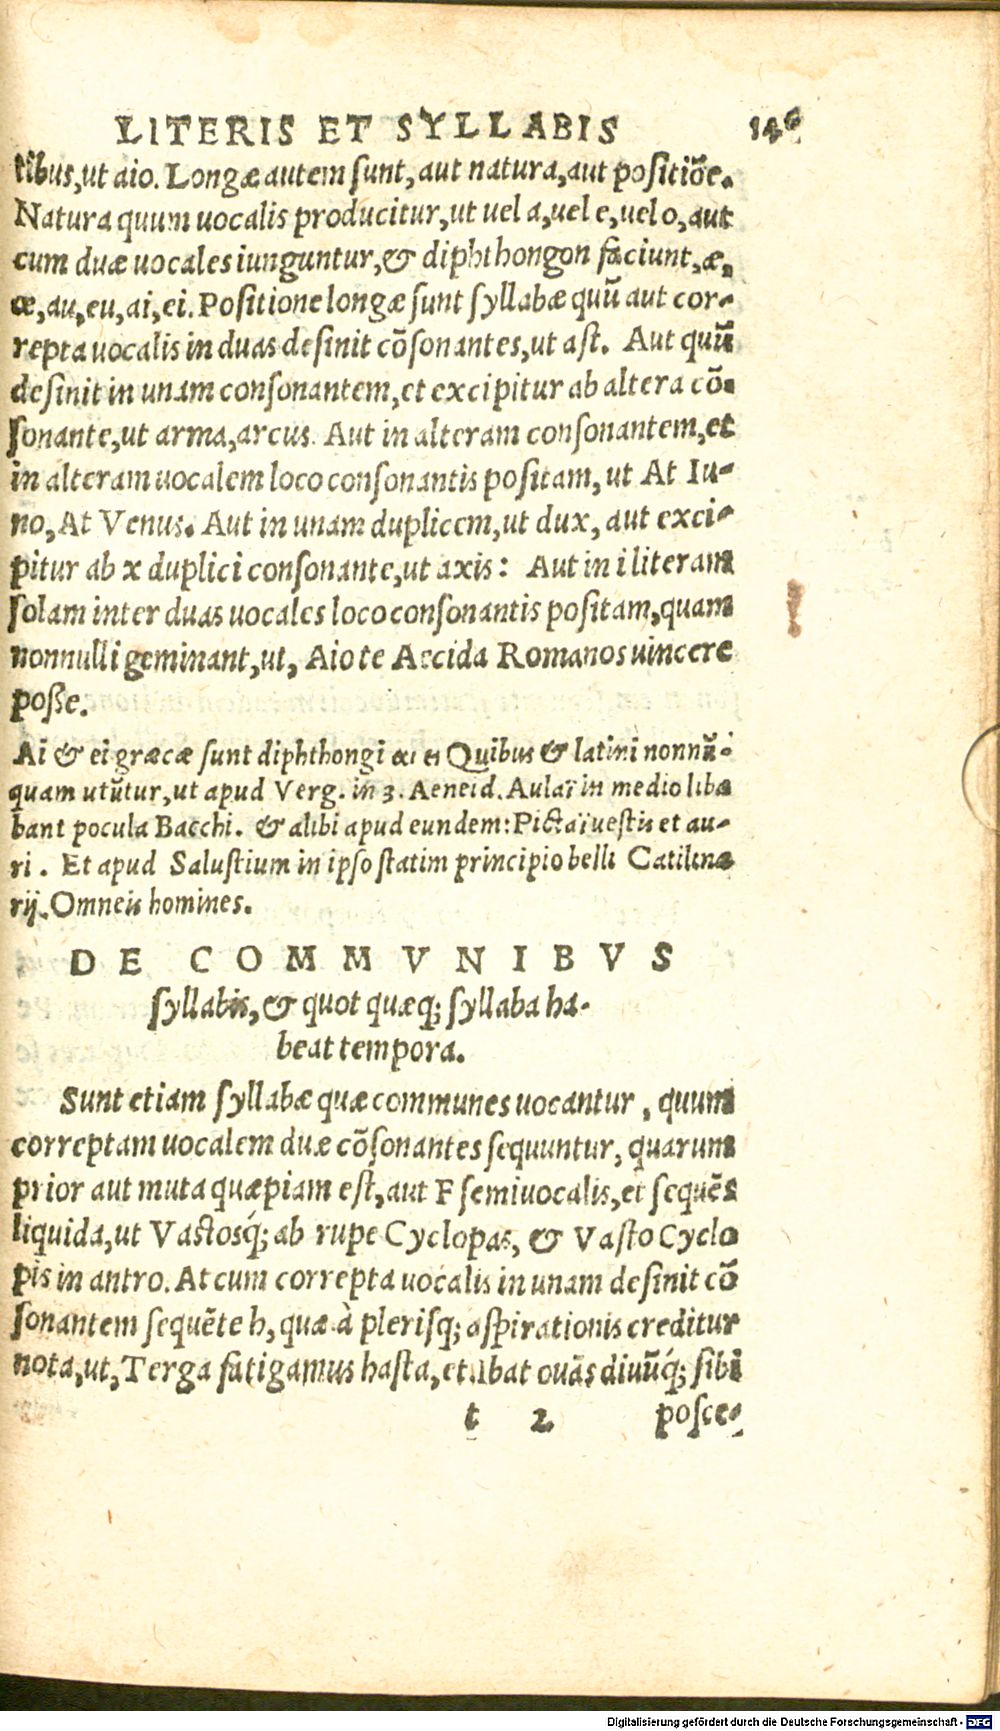 LITERIS ET SYLLABIS 146
tibus,ut aio. Longæ autem ſunt, aut natura,aut poſitiõe.
Natura quum uocalis producitur,ut uel a,uel e,uel o,aut
cum duæ uocales iunguntur,& diphthongon faciunt,æ,
œ,au,eu,ai,ei. Poſitione longæ ſunt ſyllabæ quũ aut cor-
repta uocalis in duas deſinit cõſonantes,ut aſt. Aut quũ
deſinit in unam conſonantem,et excipitur ab altera cõ-
ſonante,ut arma,arcus. Aut in alteram conſonantem,et
in alteram uocalem loco conſonantis poſitam, ut At Iu-
no, At Venus. Aut in unam duplicem,ut dux, aut exci-
pitur ab x duplici conſonante,ut axis: Aut in i literam
ſolam inter duas uocales loco conſonantis poſitam,quam
nonnulli geminant,ut, Aio te Aecida Romanos uincere
poſſe.
Ai & ei græcæ ſunt diphthongi αι ει Quibus & latini nonnũ-
quam utũtur,ut apud Verg. in 3. Aeneid. Aulaï in medio liba
bant pocula Bacchi. & alibi apud eundem: Pictaï ueſtis et au-
ri. Et apud Saluſtium in ipſo ſtatim principio belli Catilina
rij. Omneis homines.
DE COMMVNIBVS
ſyllabis, & quot quæq; ſyllaba ha-
beat tempora.
Sunt etiam ſyllabæ quæ communes uocantur, quum
correptam uocalem duæ cõſonantes ſequuntur, quarum
prior aut muta quæpiam eſt, aut F ſemiuocalis, et ſequẽs
liquida,ut Vaſtosq́; ab rupe Cyclopas, & Vaſto Cyclo
pis in antro. At cum correpta uocalis in unam deſinit cõ
ſonantem ſequẽte h, quæ à pleriſq; aſpirationis creditur
nota,ut, Terga fatigamus haſta, et Ibat ouãs diuũq́; ſibi
t 2 poſce-
Digitalisierung gefördert durch die Deutsche Forschungsgemeinschaft - DFG